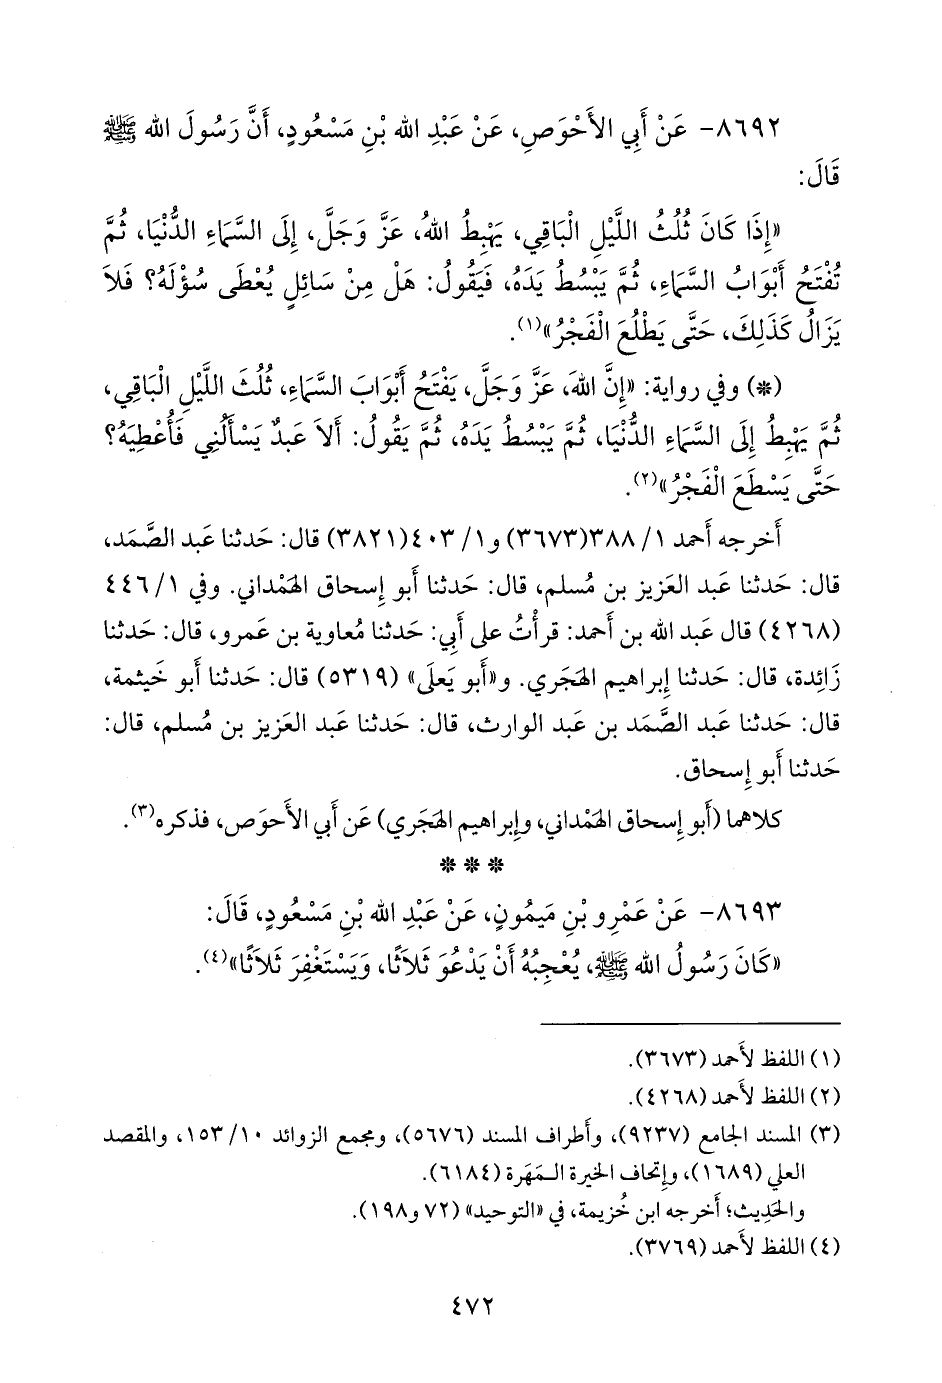 ٨٦٩٢- عَنْ أَبِي الأَحْوَصِ، عَنْ عَبْدِ الله بْنِ مَسْعُودٍ، أَنَّ رَسُولَ الله ﷺ
قَالَ:
«إِذَا كَانَ ثُلُثُ اللَّيْلِ الْبَاقِي، يَهْبِطُ اللهُ، عَزَّ وَجَلَّ، إِلَى السَّمَاءِ الدُّنْيَا، ثُمَّ
تُفْتَحُ أَبْوَابُ السَّمَاءِ، ثُمَّ يَبْسُطُ يَدَهُ، فَيَقُولُ: هَلْ مِنْ سَائِلٍ يُعْطَى سُؤْلَهُ؟ فَلاَ
يَزَالُ كَذَلِكَ، حَتَّى يَطْلُعَ الْفَجْرُ»(١).
(*) وفي رواية: «إِنَّ اللهَ، عَزَّ وَجَلَّ، يَفْتَحُ أَبْوَابَ السَّمَاءِ، ثُلُثَ اللَّيْلِ الْبَاقِي،
ثُمَّ يَهْبِطُ إِلَى السَّمَاءِ الدُّنْيَا، ثُمَّ يَبْسُطُ يَدَهُ، ثُمَّ يَقُولُ: أَلاَ عَبْدٌ يَسْأَلُنِي فَأُعْطِيَهُ؟
حَتَّى يَسْطَعَ الْفَجْرُ»(٢).
أَخرجه أَحمد ١/ ٣٨٨(٣٦٧٣) و١/ ٤٠٣(٣٨٢١) قال: حَدثنا عَبد الصَّمَد،
قال: حَدثنا عَبد العَزيز بن مُسلم، قال: حَدثنا أَبو إِسحاق الهَمْداني. وفي ١/ ٤٤٦
(٤٢٦٨) قال عَبد الله بن أَحمد: قرأْتُ على أَبي: حَدثنا مُعاوية بن عَمرو، قال: حَدثنا
زَائِدة، قال: حَدثنا إِبراهيم الهَجَري. و«أَبو يَعلَى» (٥٣١٩) قال: حَدثنا أَبو خَيثمة،
قال: حَدثنا عَبد الصَّمَد بن عَبد الوارث، قال: حَدثنا عَبد العَزيز بن مُسلم، قال:
حَدثنا أَبو إِسحاق.
كلاهما (أَبو إِسحاق الهَمْداني، وإِبراهيم الهَجَري) عَن أَبي الأَحوَص، فذكره(٣).
* * *
٨٦٩٣- عَنْ عَمْرِو بْنِ مَيمُونٍ، عَنْ عَبْدِ الله بْنِ مَسْعُودٍ، قَالَ:
«كَانَ رَسُولُ الله ﷺ، يُعْجِبُهُ أَنْ يَدْعُوَ ثَلاَثًا، وَيَسْتَغْفِرَ ثَلاَثًا»(٤).
(١) اللفظ لأَحمد (٣٦٧٣).
(٢) اللفظ لأَحمد (٤٢٦٨).
(٣) المسند الجامع (٩٢٣٧)، وأَطراف المسند (٥٦٧٦)، ومجمع الزوائد ١٠/ ١٥٣، والمقصد
العلي (١٦٨٩)، وإِتحاف الخِيرة المَهَرة (٦١٨٤).
والحَدِيث؛ أَخرجه ابن خُزيمة، في «التوحيد» (٧٢ و١٩٨).
(٤) اللفظ لأَحمد (٣٧٦٩).
٤٧٢